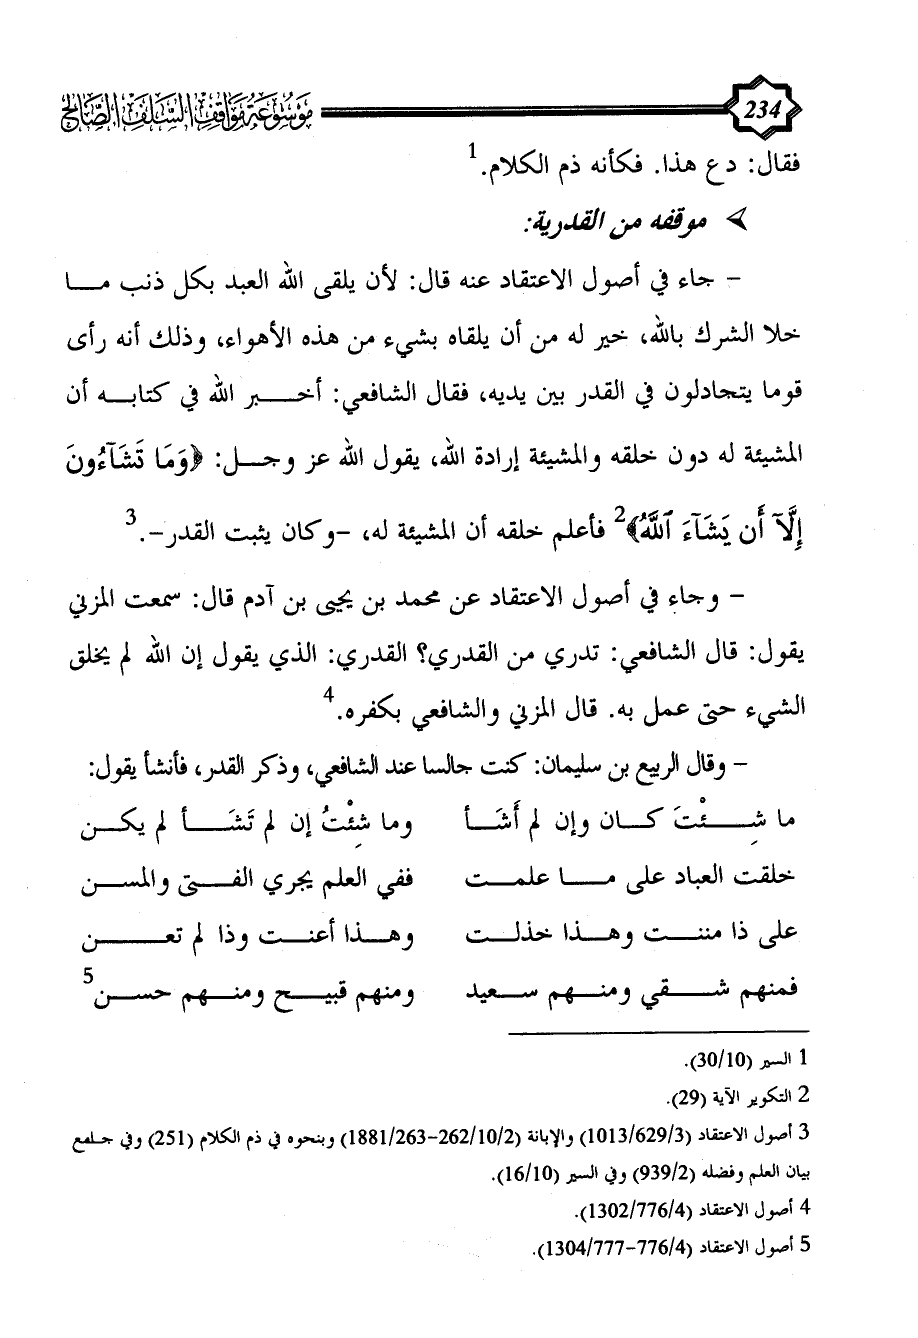 موسوعة مواقف السلف الصالح 234
فقال: دع هذا. فكأنه ذم الكلام.1
➤ موقفه من القدرية:
- جاء في أصول الاعتقاد عنه قال: لأن يلقى الله العبد بكل ذنب مـــا
خلا الشرك بالله، خير له من أن يلقاه بشيء من هذه الأهواء، وذلك أنه رأى
قوما يتجادلون في القدر بين يديه، فقال الشافعي: أخـــبر الله في كتابـــه أن
المشيئة له دون خلقه والمشيئة إرادة الله، يقول الله عز وجـــل: ﴿وَمَا تَشَآءُونَ
إِلَّآ أَن يَشَآءَ ٱللَّهُ﴾2 فأعلم خلقه أن المشيئة له، -وكان يثبت القدر-.3
- وجاء في أصول الاعتقاد عن محمد بن يحيى بن آدم قال: سمعت المزني
يقول: قال الشافعي: تدري من القدري؟ القدري: الذي يقول إن الله لم يخلق
الشيء حتى عمل به. قال المزني والشافعي بكفره.4
- وقال الربيع بن سليمان: كنت جالسا عند الشافعي، وذكر القدر، فأنشأ يقول:
ما شِـــئْتَ كـــان وإن لم أَشَـــأ وما شِئْتُ إن لم تَشَـــأ لم يكـــن
خلقت العباد على مـــا علمـــت ففي العلم يجري الفـــتى والمســـن
على ذا مننـــت وهـــذا خذلـــت وهـــذا أعنـــت وذا لم تعـــــن
فمنهم شـــقي ومنـــهم ســـعيد ومنهم قبيـــح ومنـــهم حســـن5
1 السير (30/10).
2 التكوير الآية (29).
3 أصول الاعتقاد (1013/629/3) والإبانة (1881/263-262/10/2) وبنحوه في ذم الكلام (251) وفي جـــامع
بيان العلم وفضله (939/2) وفي السير (16/10).
4 أصول الاعتقاد (1302/776/4).
5 أصول الاعتقاد (1304/777-776/4).